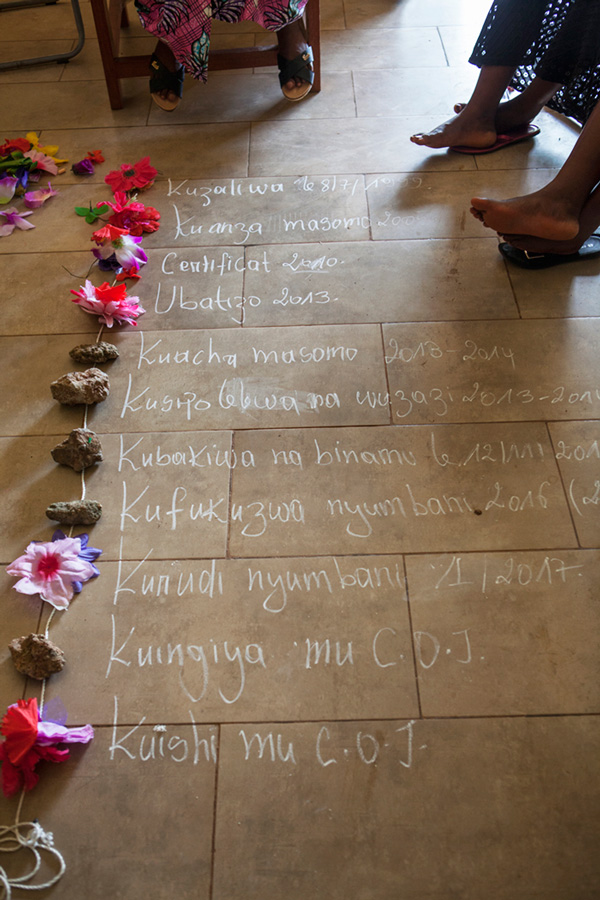 Kuzaliwa le 8/7/
Kuanza masomo
Certificat 2010.
Ubatizo 2013.
Kuacha masomo 2013-2014
na wuzazi 2013-201
Kubakiwa na binamu le 12/11/ 201
Kufukuzwa nyumbani 2016 (2
Kurudi nyumbani /1/2017.
Kuingiya mu C.O.J.
Kuishi mu C.O.J.